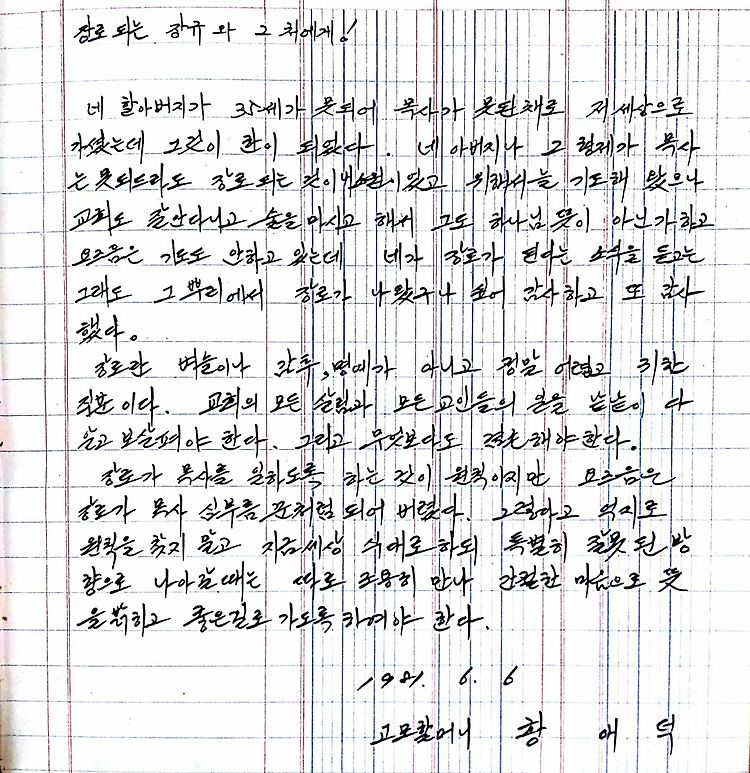 장로 되는 창규 와 그 처에게!
네 할아버지가 35세가 못되어 목사가 못된채로 저세상으로
가셨는데 그것이 한이 되었다. 네 아버지나 그 형제가 목사
는 못되드라도 장로 되는 것이 소원이었고 위해서늘 기도해 왔으나
교회도 잘안다니고 술을 마시고 해서 그도 하나님 뜻이 아닌가하고
요즈음은 기도도 안하고 있는데 네가 장로가 된다는 소식을 듣고는
그래도 그 뿌리에서 장로가 나왔구나 싶어 감사하고 또 감사
했다.
장로란 벼슬이나 감투, 명예가 아니고 정말 어렵고 귀한
직분 이다. 교회의 모든 살림과 모든 교인들의 일을 낱낱이 다
알고 보살펴야 한다. 그리고 무엇보다도 겸손해야한다.
장로가 목사를 일하도록 하는 것이 원칙이지만 요즈음은
장로가 목사 심부름꾼처럼 되어 버렸다. 그렇다고 억지로
원칙을 찾지 말고 지금세상 식대로 하되 특별히 잘못 된 방
향으로 나아갈때는 따로 조용히 만나 간절한 마음으로 뜻
을 밝히고 좋은길로 가도록 하여야 한다.
1981. 6. 6
고모할머니 황 애 덕